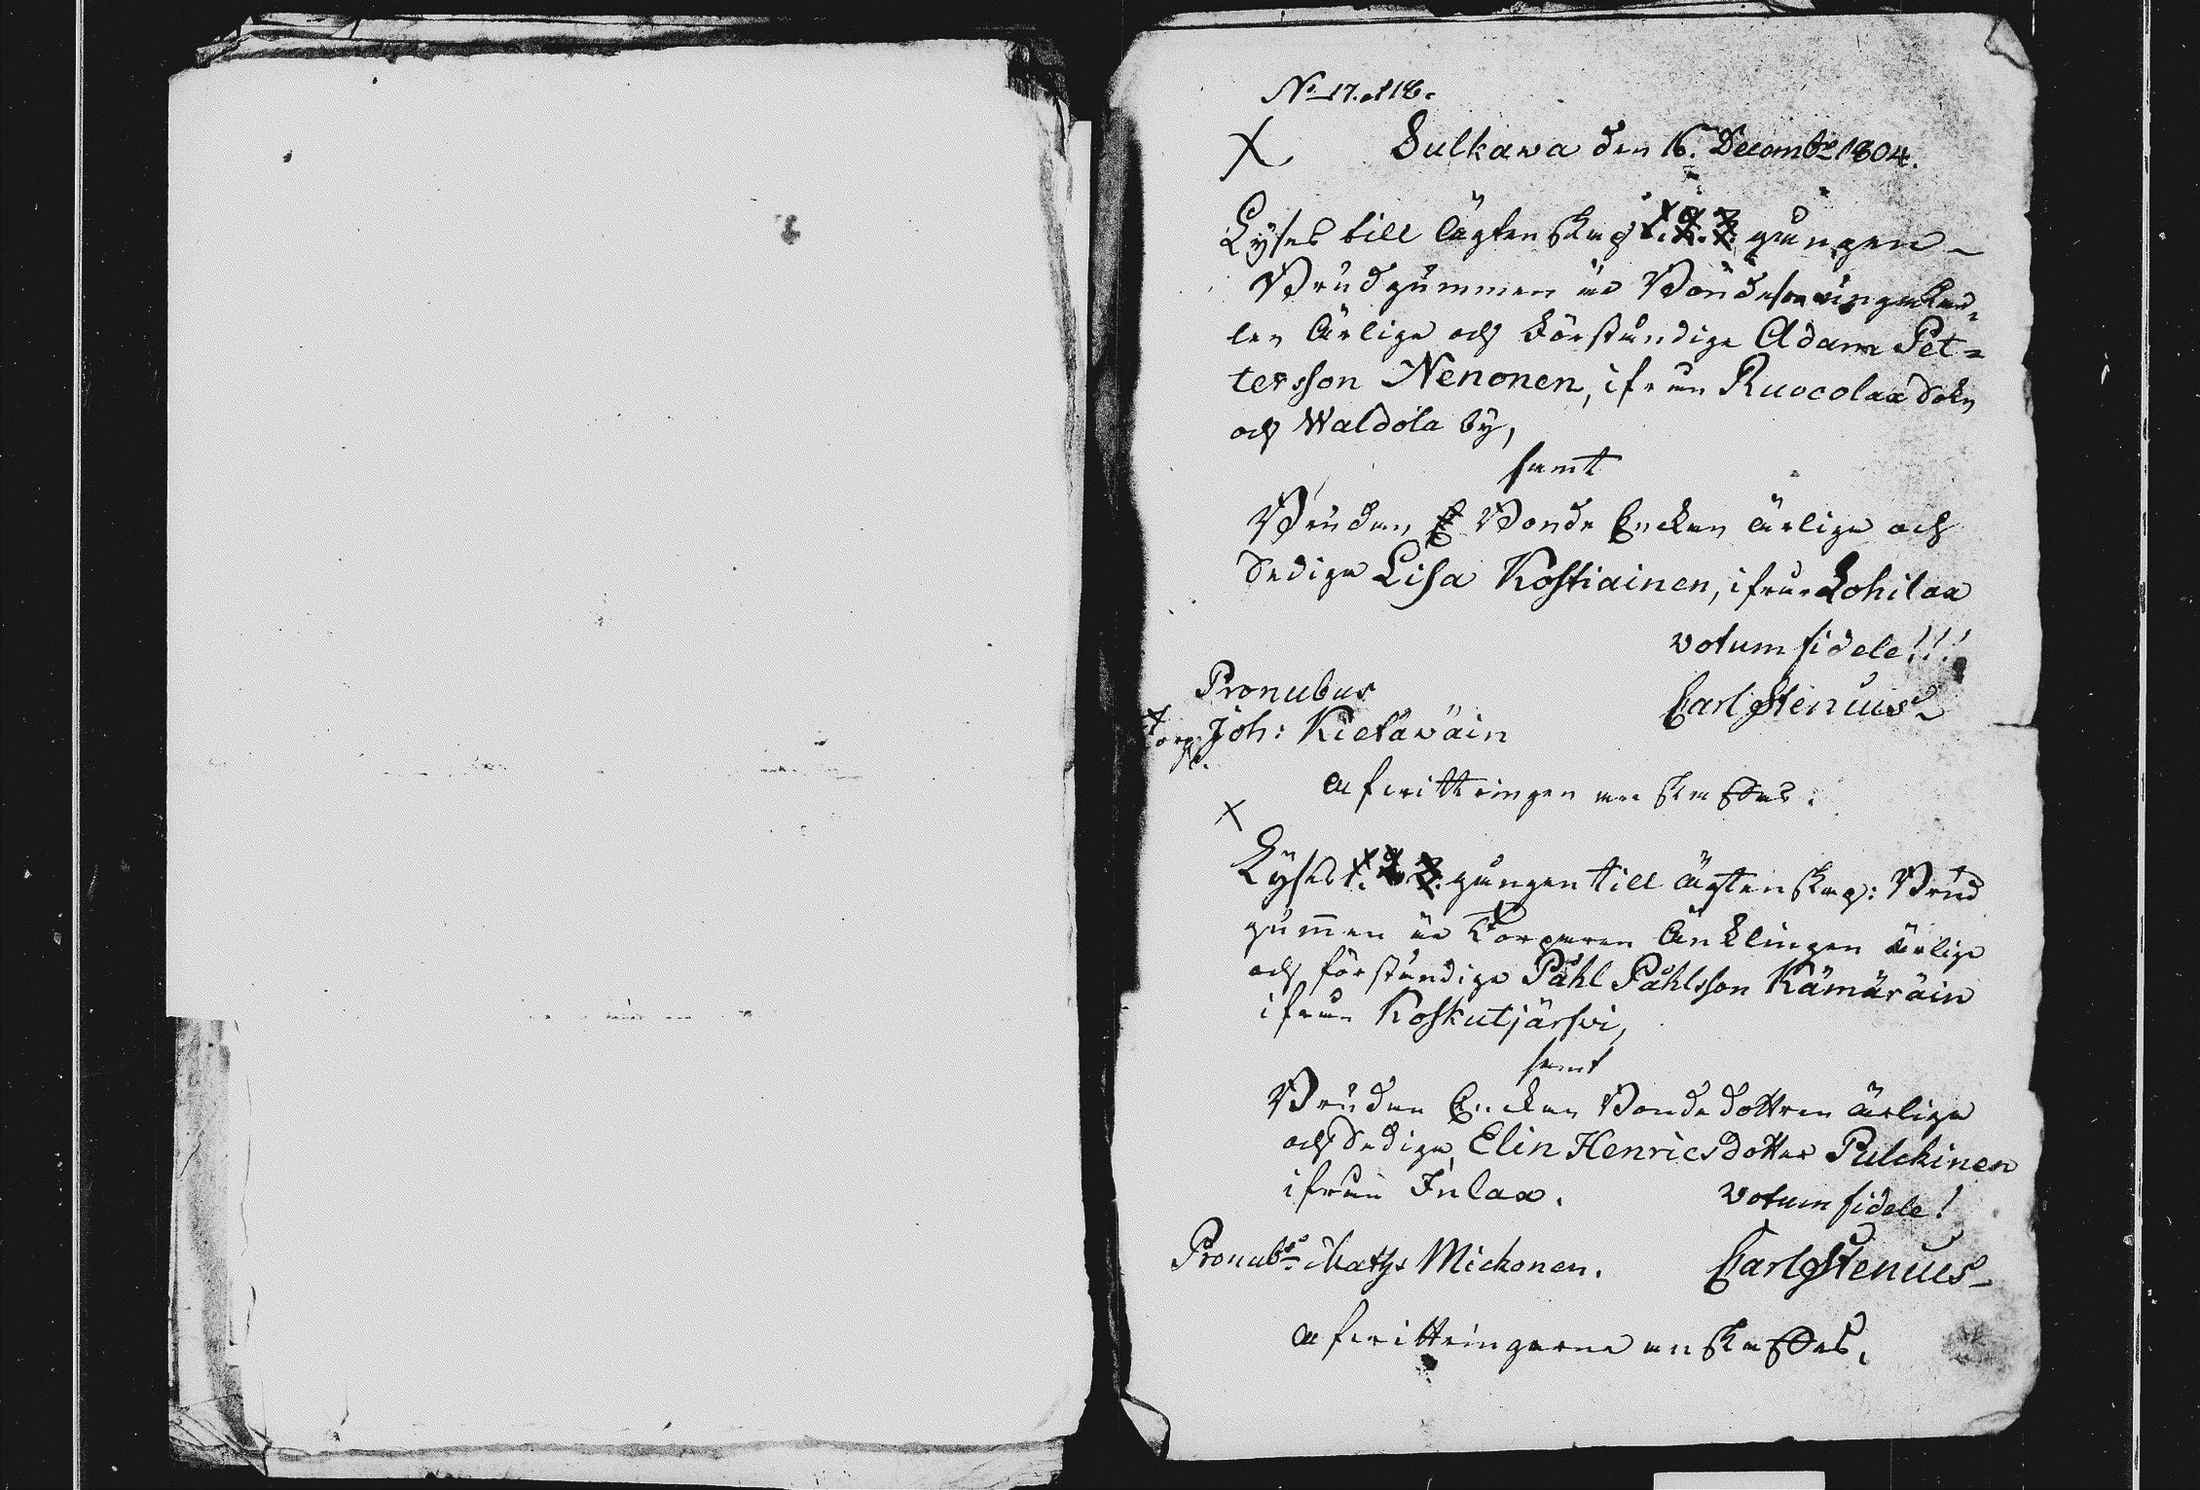 No 17. et 18.
X Sulkawa den 16. Decembr 1804.
Lyses till ägtenskap 1. 2. 3. gången
Brudgummen är Bondesonen ungkar-
len ärlige och förståndige Adam Pet=
tersson Nenonen, ifrån Ruocolax Sokn
och Waldola by,
samt
Bruden, Bonde Enckan ärliga och
Sediga Lisa Kostiainen, ifrån Lohilax
votum fidele!!!
Pronubus Carl Stenius
Torp. Joh: Kietäwäin
afvittringen anskaffes.
X
Lyses 1. 2. 3. gången till ägtenskap: Brud
gummen är Torparen Änklingen ärlige
och förståndige Påhl Påhlsson Kämäräin
ifrån Koskutjärfvi,
samt
Bruden Enckan Bondedottren ärliga
och Sediga Elin Henricsdotter Pulckinen
ifrån Iulax. votum fidele!
Pronubs Maths Mickonen. Carl Stenius
afvittringarne anskaffes.